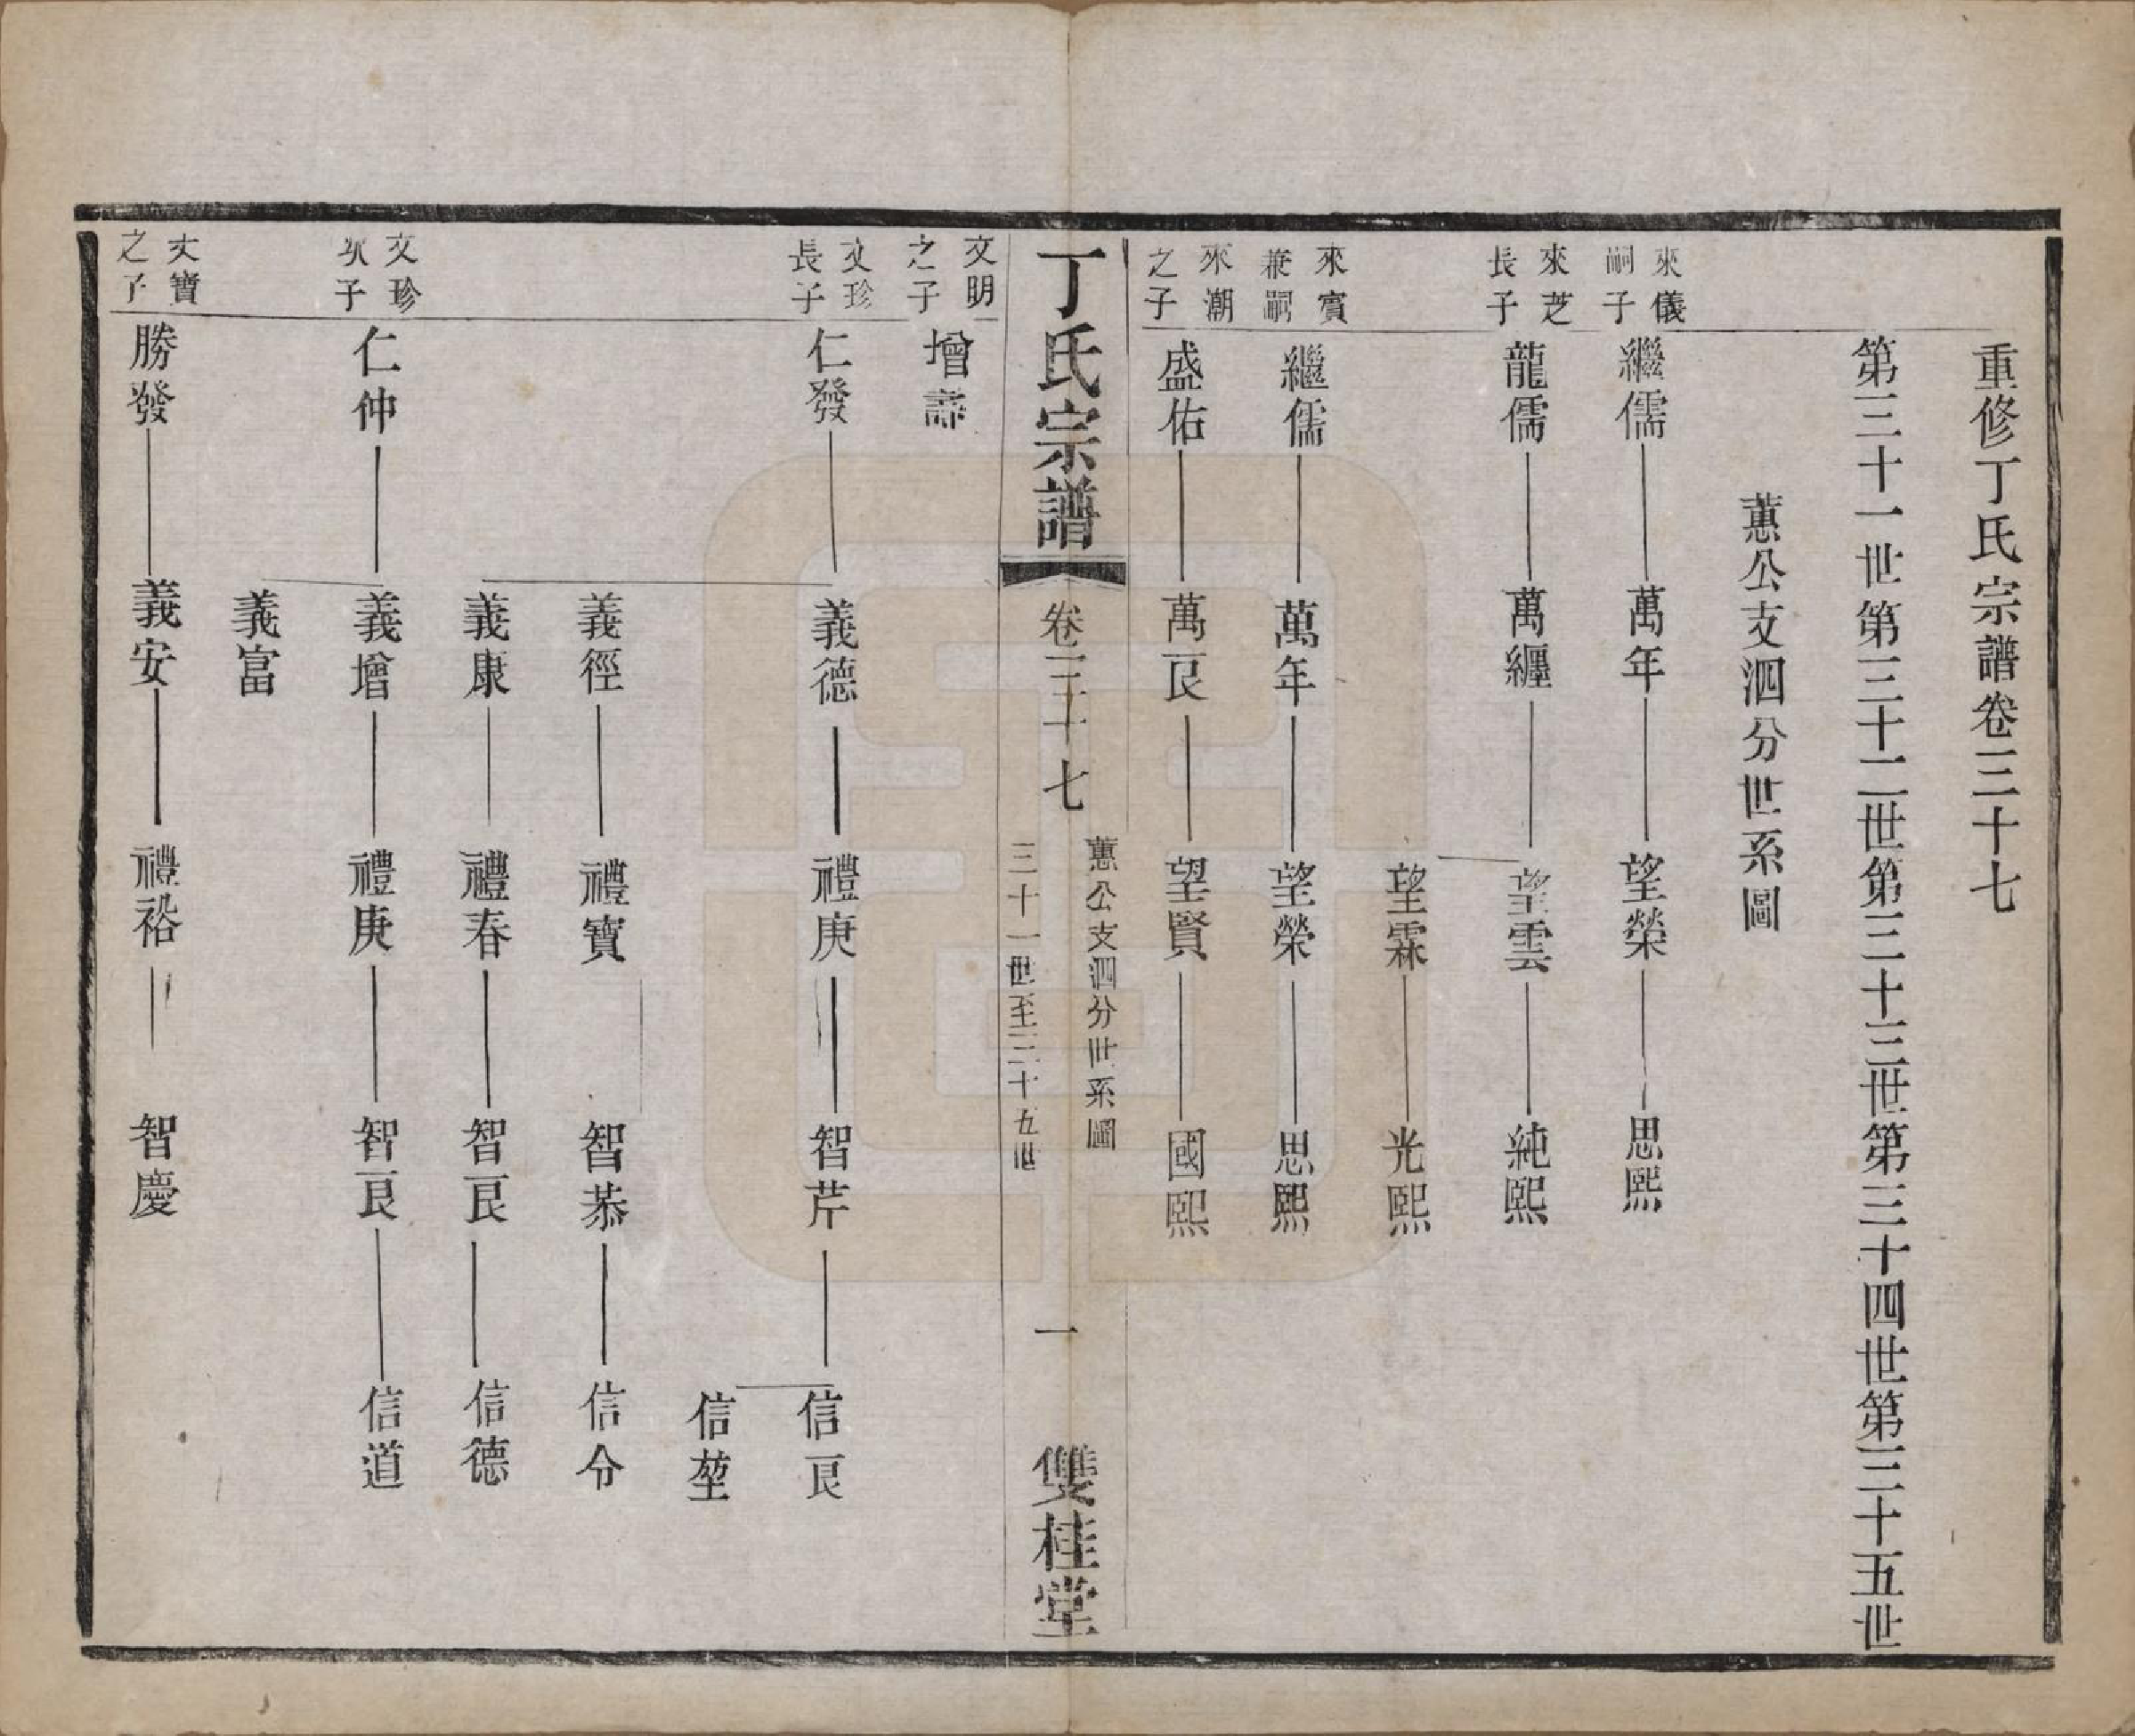 重修丁氏宗譜卷三十七
第三十一世第三十二世第三十三世第三十四世第三十五世
蕙公支泗分世系圖
來儀
嗣子
繼儒 萬年 望榮 思熙
來芝
長子
龍儒 萬纏 望雲 純熙
望霖 光熙
來賓
兼嗣
繼儒 萬年 望榮 思熙
來潮
之子
盛佑 萬艮 望賢 國熙
丁氏宗譜 卷三十七
蕙公支泗分世系圖
三十一世至三十五世
一 雙桂堂
文明
之子
增壽
文珍
長子
仁發 義德 禮庚 智芹 信艮
信堃
義徑 禮寶 智恭 信令
義康 禮春 智艮 信德
文珍
次子
仁仲 義增 禮庚 智艮 信道
義富
文寶
之子
勝發 義安 禮裕 智慶